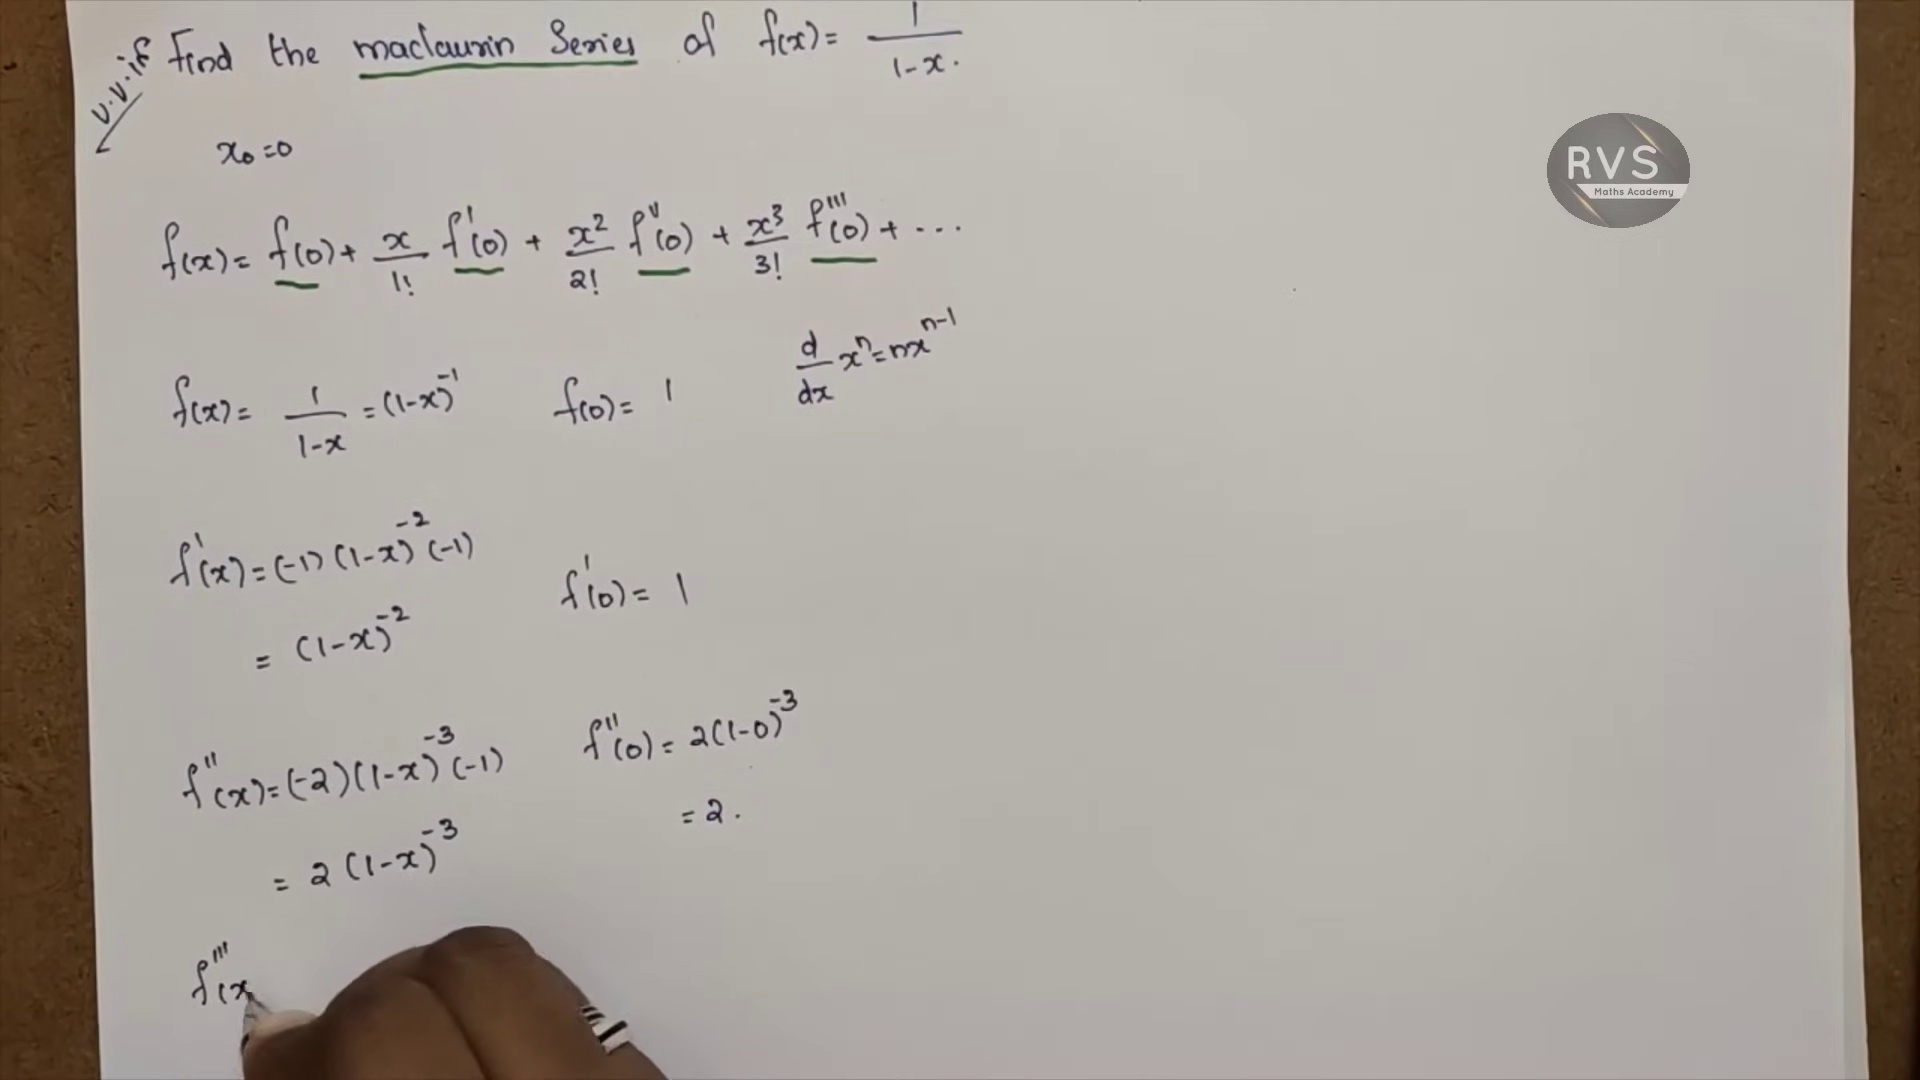 v.v.if
Find the maclaurin Series of f(x) = 1/(1-x).
RVS
Maths Academy
x₀=0
f(x) = f(0) + x/1! f'(0) + x²/2! f''(0) + x³/3! f'''(0) + ...
d/dx xⁿ = nxⁿ⁻¹
f(x) = 1/(1-x) = (1-x)⁻¹ f(0) = 1
f'(x) = (-1)(1-x)⁻²(-1)
f'(0) = 1
= (1-x)⁻²
f''(x) = (-2)(1-x)⁻³(-1) f''(0) = 2(1-0)⁻³
= 2.
= 2(1-x)⁻³
f'''(x